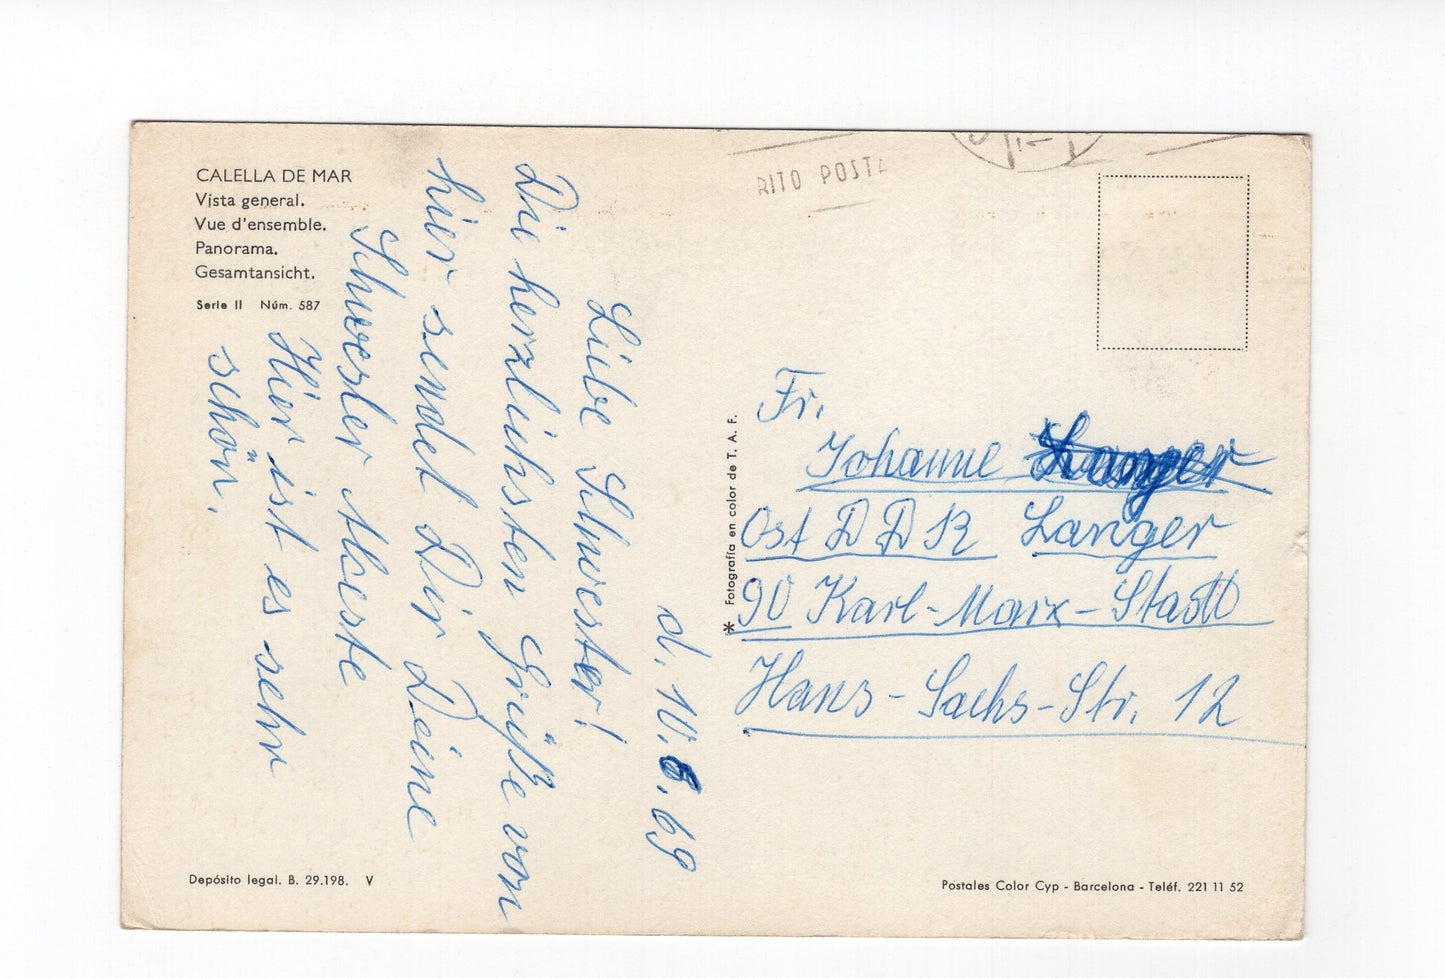 CALELLA DE MAR
Vista general.
Vue d'ensemble.
Panorama.
Gesamtansicht.
Serie II Núm. 587
d. 10.6.69
Liebe Schwester!
Die herzlichsten Grüße von
hier sendet Dir Deine
Schwester
Hier ist es sehr
schön.
Depósito legal. B. 29.198. V
* Fotografía en color de T. A. F.
RITO POSTA
Fr.
Johanne Langer
Ost DDR Langer
90 Karl-Marx-Stadt
Hans-Sachs-Str. 12
Postales Color Cyp - Barcelona - Teléf. 221 11 52